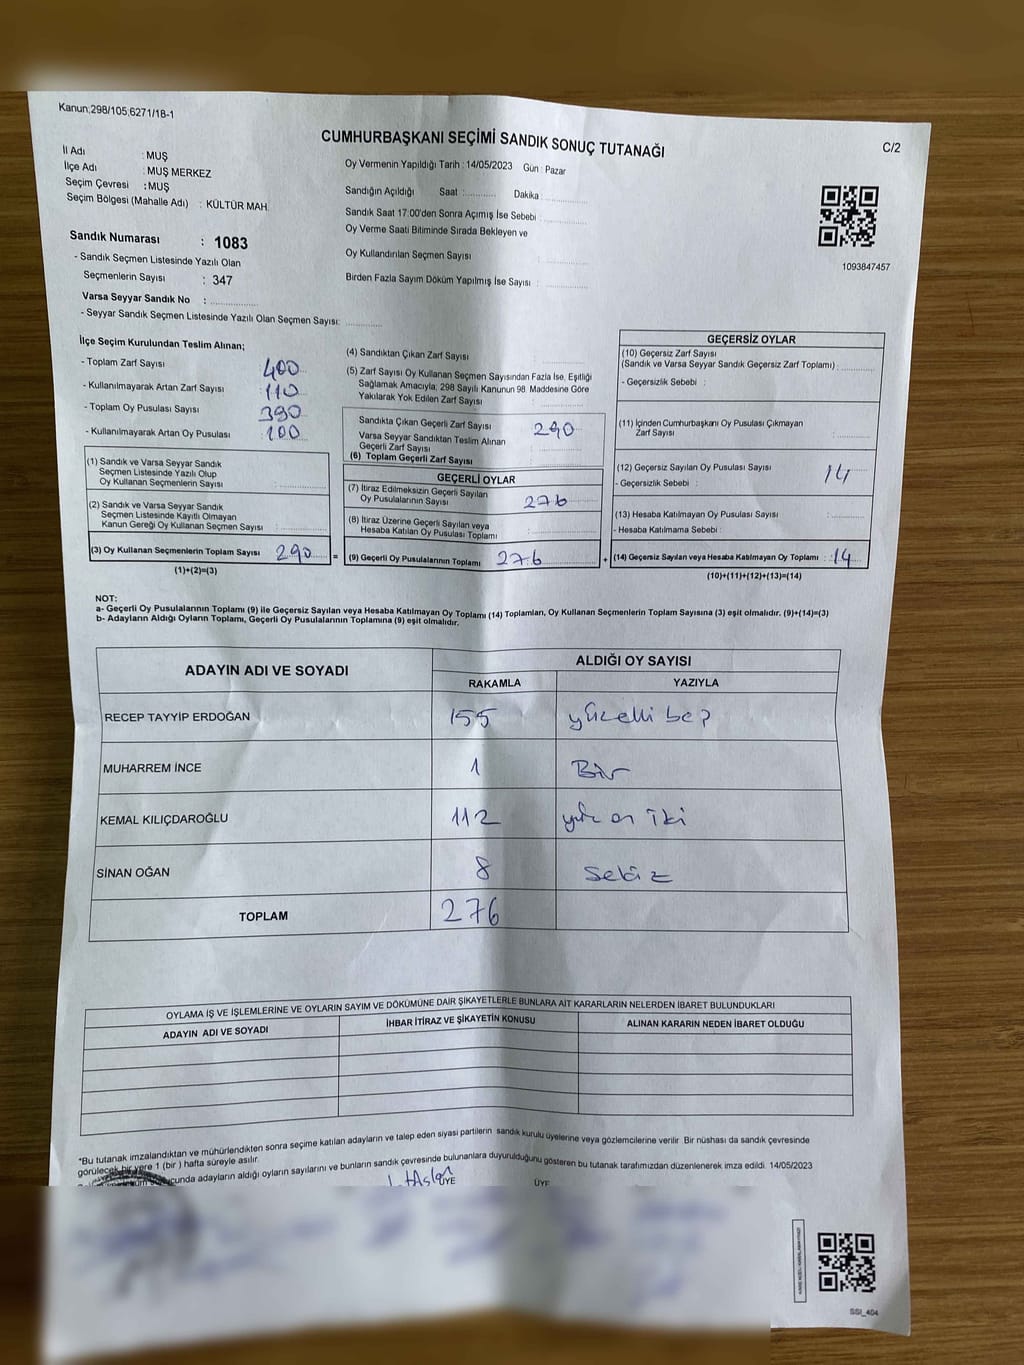 Kanun;298/105;6271/18-1
CUMHURBAŞKANI SEÇİMİ SANDIK SONUÇ TUTANAĞI
C/2
İl Adı : MUŞ
İlçe Adı : MUŞ MERKEZ
Seçim Çevresi : MUŞ
Seçim Bölgesi (Mahalle Adı) : KÜLTÜR MAH.
Sandık Numarası : 1083
- Sandık Seçmen Listesinde Yazılı Olan
Seçmenlerin Sayısı : 347
Varsa Seyyar Sandık No :
- Seyyar Sandık Seçmen Listesinde Yazılı Olan Seçmen Sayısı:
Oy Vermenin Yapıldığı Tarih : 14/05/2023 Gün : Pazar
Sandığın Açıldığı Saat : Dakika :
Sandık Saat 17:00'den Sonra Açımış İse Sebebi :
Oy Verme Saati Bitiminde Sırada Bekleyen ve
Oy Kullandırılan Seçmen Sayısı :
Birden Fazla Sayım Döküm Yapılmış İse Sayısı :
1093847457
İlçe Seçim Kurulundan Teslim Alınan;
- Toplam Zarf Sayısı : 400
- Kullanılmayarak Artan Zarf Sayısı : 110
- Toplam Oy Pusulası Sayısı : 390
- Kullanılmayarak Artan Oy Pusulası : 100
(1) Sandık ve Varsa Seyyar Sandık
Seçmen Listesinde Yazılı Olup
Oy Kullanan Seçmenlerin Sayısı :
(2) Sandık ve Varsa Seyyar Sandık
Seçmen Listesinde Kayıtlı Olmayan
Kanun Gereği Oy Kullanan Seçmen Sayısı :
(3) Oy Kullanan Seçmenlerin Toplam Sayısı : 290 =
(1)+(2)=(3)
(4) Sandıktan Çıkan Zarf Sayısı :
(5) Zarf Sayısı Oy Kullanan Seçmen Sayısından Fazla İse, Eşitliği
Sağlamak Amacıyla; 298 Sayılı Kanunun 98. Maddesine Göre
Yakılarak Yok Edilen Zarf Sayısı :
Sandıkta Çıkan Geçerli Zarf Sayısı : 290
Varsa Seyyar Sandıktan Teslim Alınan
Geçerli Zarf Sayısı :
(6) Toplam Geçerli Zarf Sayısı
GEÇERLİ OYLAR
(7) İtiraz Edilmeksizin Geçerli Sayılan
Oy Pusulalarının Sayısı : 276
(8) İtiraz Üzerine Geçerli Sayılan veya
Hesaba Katılan Oy Pusulası Toplamı :
(9) Geçerli Oy Pusulalarının Toplamı 276 +
GEÇERSİZ OYLAR
(10) Geçersiz Zarf Sayısı
(Sandık ve Varsa Seyyar Sandık Geçersiz Zarf Toplamı) :
- Geçersizlik Sebebi :
(11) İçinden Cumhurbaşkanı Oy Pusulası Çıkmayan
Zarf Sayısı :
(12) Geçersiz Sayılan Oy Pusulası Sayısı : 14
- Geçersizlik Sebebi :
(13) Hesaba Katılmayan Oy Pusulası Sayısı :
- Hesaba Katılmama Sebebi :
(14) Geçersiz Sayılan veya Hesaba Katılmayan Oy Toplamı : 14
(10)+(11)+(12)+(13)=(14)
NOT:
a- Geçerli Oy Pusulalarının Toplamı (9) ile Geçersiz Sayılan veya Hesaba Katılmayan Oy Toplamı (14) Toplamları, Oy Kullanan Seçmenlerin Toplam Sayısına (3) eşit olmalıdır. (9)+(14)=(3)
b- Adayların Aldığı Oyların Toplamı, Geçerli Oy Pusulalarının Toplamına (9) eşit olmalıdır.
ADAYIN ADI VE SOYADI ALDIĞI OY SAYISI
RAKAMLA YAZIYLA
RECEP TAYYİP ERDOĞAN 155 yüzelli beş
MUHARREM İNCE 1 Bir
KEMAL KILIÇDAROĞLU 112 yüz on iki
SİNAN OĞAN 8 Sekiz
TOPLAM 276
OYLAMA İŞ VE İŞLEMLERİNE VE OYLARIN SAYIM VE DÖKÜMÜNE DAİR ŞİKAYETLERLE BUNLARA AİT KARARLARIN NELERDEN İBARET BULUNDUKLARI
ADAYIN ADI VE SOYADI İHBAR İTİRAZ VE ŞİKAYETİN KONUSU ALINAN KARARIN NEDEN İBARET OLDUĞU
*Bu tutanak imzalandıktan ve mühürlendikten sonra seçime katılan adayların ve talep eden siyasi partilerin sandık kurulu üyelerine veya gözlemcilerine verilir Bir nüshası da sandık çevresinde
görülecek bir yere 1 (bir ) hafta süreyle asılır.
adayların aldığı oyların sayılarını ve bunların sandık çevresinde bulunanlara duyurulduğunu gösteren bu tutanak tarafımızdan düzenlenerek imza edildi. 14/05/2023
ÜYE ÜYE
SSI_404